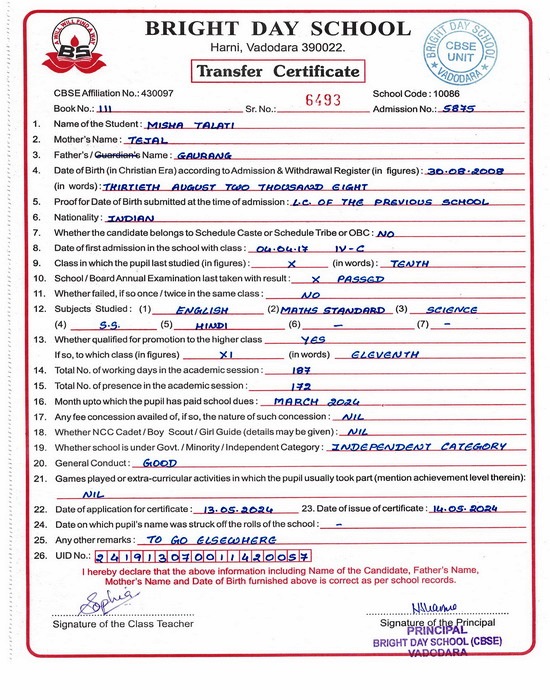 A WILL WILL FIND A WAY
BS
BRIGHT DAY SCHOOL
Harni, Vadodara 390022.
Transfer Certificate
BRIGHT DAY SCHOOL
CBSE
UNIT
VADODARA
CBSE Affiliation No.: 430097 School Code : 10086
Book No.: 111 Sr. No.: 6493 Admission No.: 5875
1. Name of the Student : MISHA TALATI
2. Mother's Name : TEJAL
3. Father's / Guardian's Name : GAURANG
4. Date of Birth (in Christian Era) according to Admission & Withdrawal Register (in figures) : 30-08-2008
(in words) : THIRTIETH AUGUST TWO THOUSAND EIGHT
5. Proof for Date of Birth submitted at the time of admission : L.C. OF THE PREVIOUS SCHOOL
6. Nationality : INDIAN
7. Whether the candidate belongs to Schedule Caste or Schedule Tribe or OBC : NO
8. Date of first admission in the school with class : 04.04.17 IV-C
9. Class in which the pupil last studied (in figures) : X (in words) : TENTH
10. School / Board Annual Examination last taken with result : X PASSED
11. Whether failed, if so once / twice in the same class : NO
12. Subjects Studied : (1) ENGLISH (2) MATHS STANDARD (3) SCIENCE
(4) S.S. (5) HINDI (6) – (7) –
13. Whether qualified for promotion to the higher class YES
If so, to which class (in figures) XI (in words) ELEVENTH
14. Total No. of working days in the academic session : 187
15. Total No. of presence in the academic session : 172
16. Month upto which the pupil has paid school dues : MARCH 2024
17. Any fee concession availed of, if so, the nature of such concession : NIL
18. Whether NCC Cadet / Boy Scout / Girl Guide (details may be given) : NIL
19. Whether school is under Govt. / Minority / Independent Category : INDEPENDENT CATEGORY
20. General Conduct : GOOD
21. Games played or extra-curricular activities in which the pupil usually took part (mention achievement level therein):
NIL
22. Date of application for certificate : 13.05.2024 23. Date of issue of certificate : 14.05.2024
24. Date on which pupil's name was struck off the rolls of the school : –
25. Any other remarks : TO GO ELSEWHERE
26. UID No.: 241913070011420057
I hereby declare that the above information including Name of the Candidate, Father's Name,
Mother's Name and Date of Birth furnished above is correct as per school records.
Sophia
Signature of the Class Teacher Signature of the Principal
PRINCIPAL
BRIGHT DAY SCHOOL (CBSE)
VADODARA